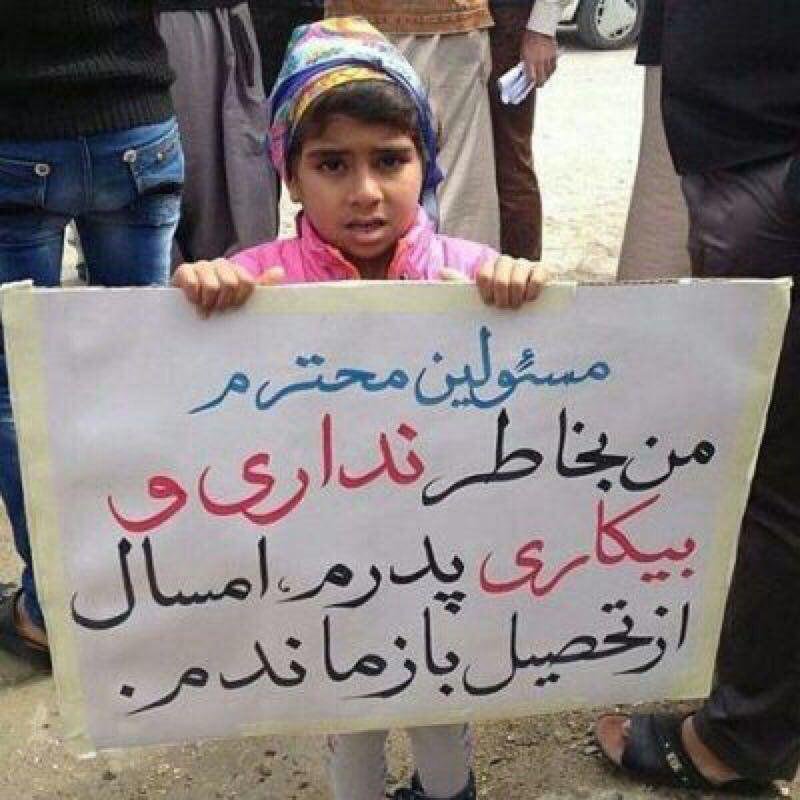 مسئولین محترم
من بخاطر نداری و
بیکاری پدرم، امسال
از تحصیل بازماندم.